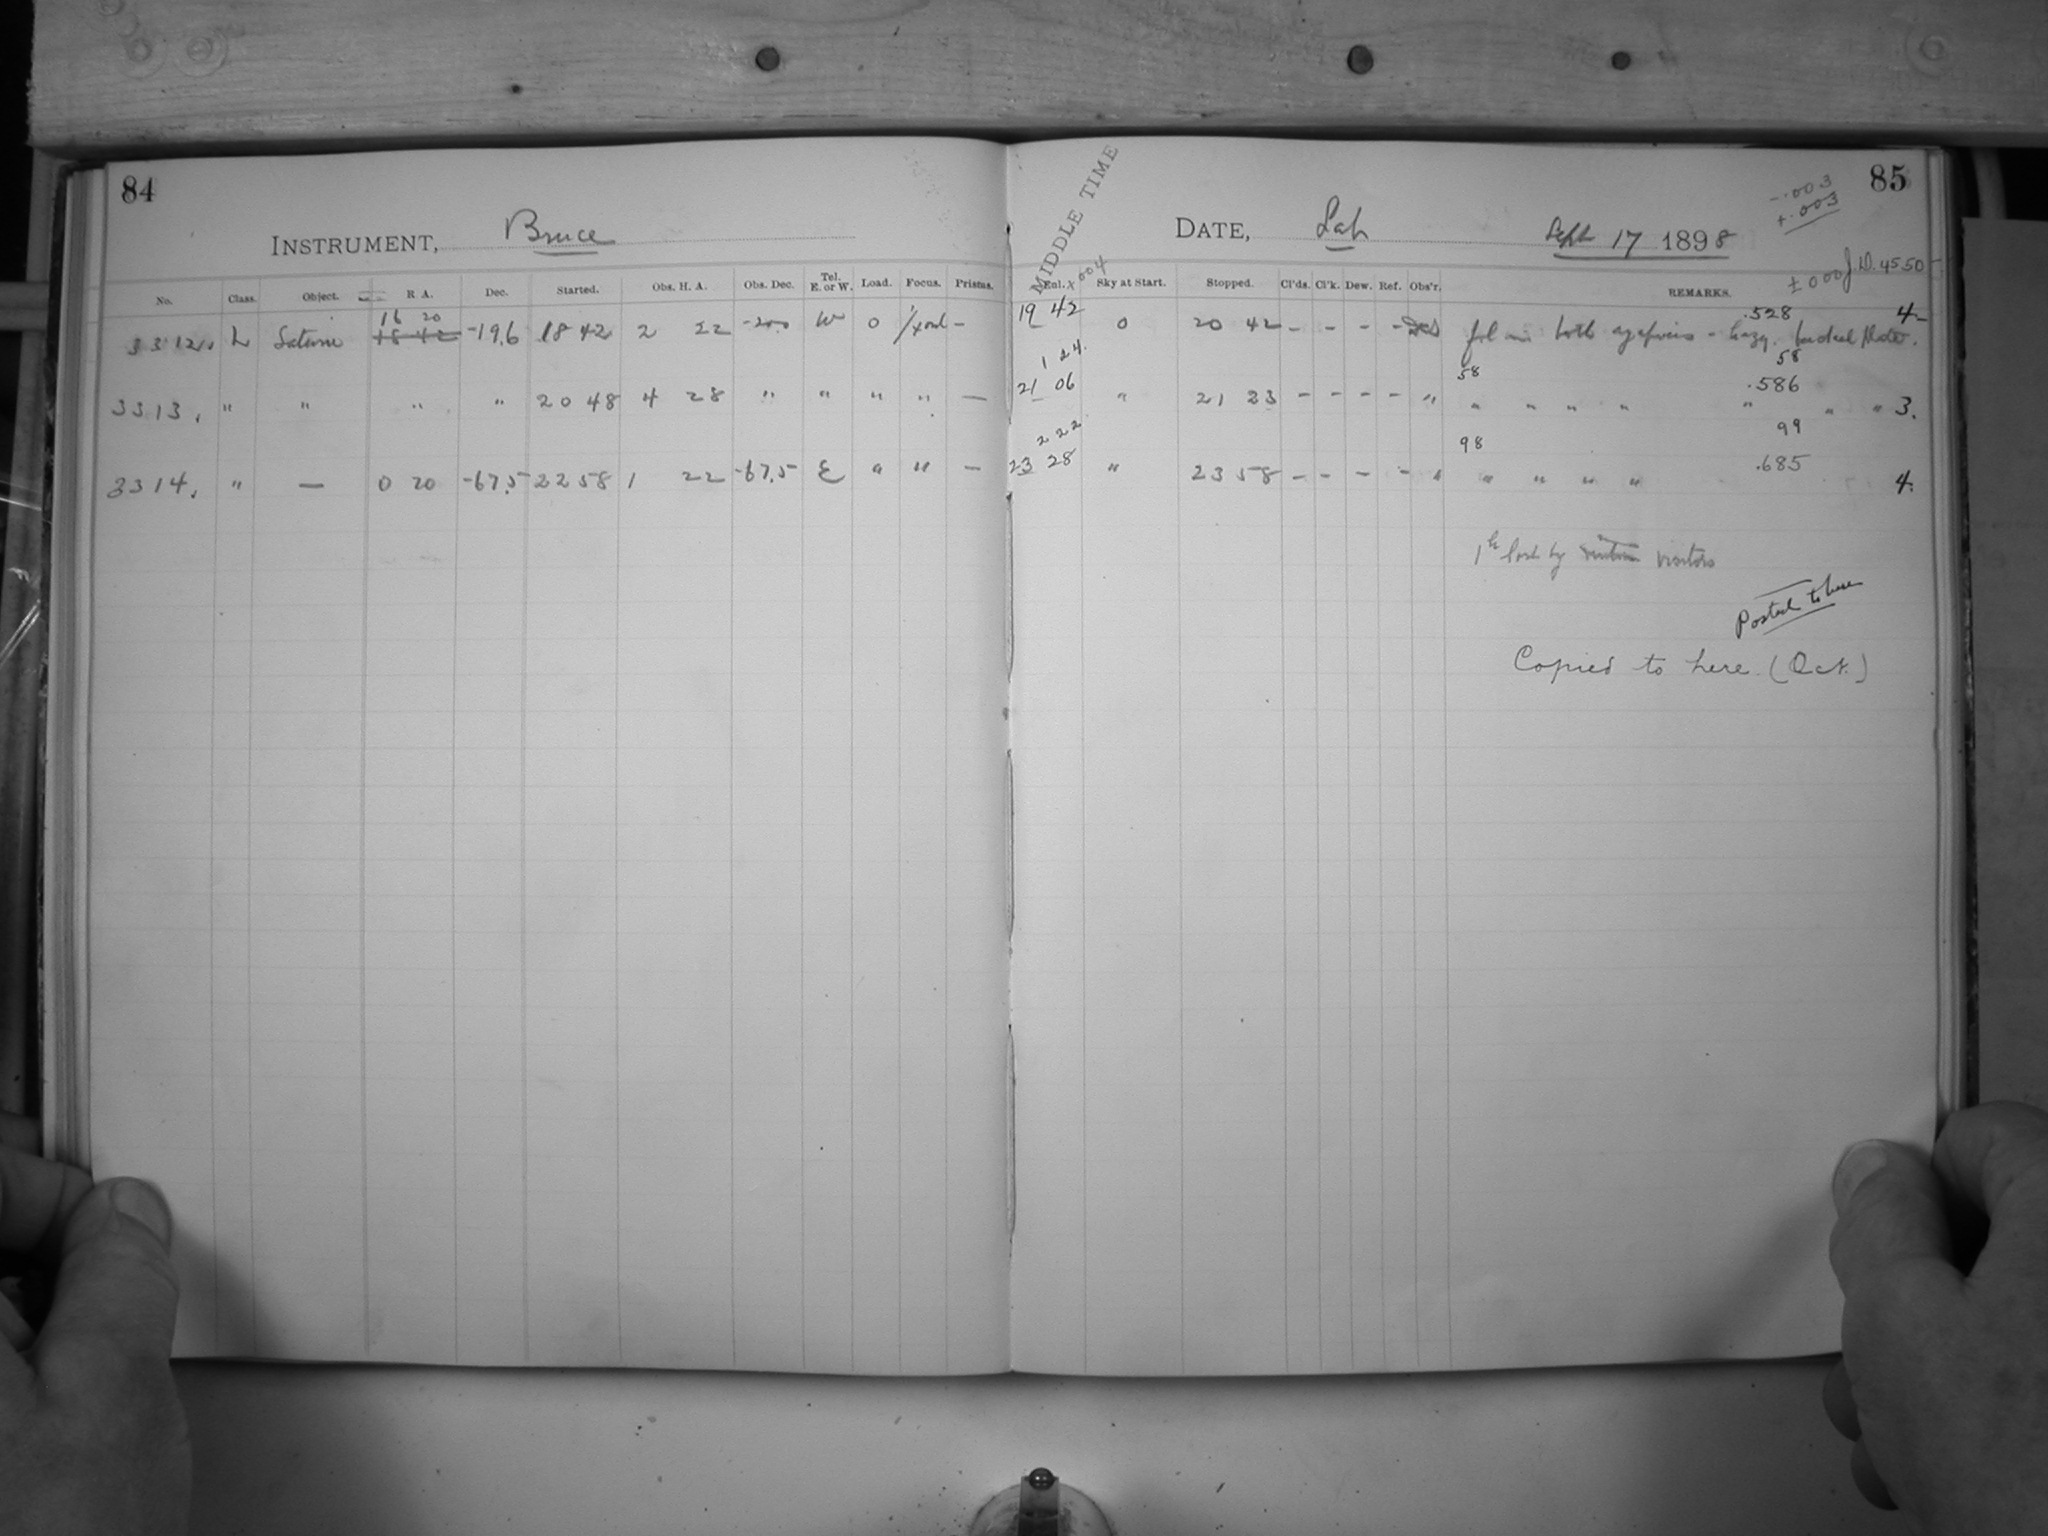 84
INSTRUMENT, Bruce
No. Class. Object. R A. Dec. Started. Obs. H. A. Obs. Dec. Tel. E. or W. Load. Focus. Prisms.
16 20
3312. L Saturn 18 42 -19.6 18 42 2 22 -20.0 W 0 –
3313. " " " " 20 48 4 28 " " " " —
3314. " — 0 20 -67.5 22 58 1 22 -67.5 E " " —
85
MIDDLE TIME
-.003
+.003
DATE, Sat Sept 17 1898
±000 J.D. 4550
x004
Enl. Sky at Start. Stopped. Cl'ds. Cl'k. Dew. Ref. Obs'r. REMARKS.
.528 4-
19 42 0 20 42 – – – – both – hazy.
1 24. 58
58
21 06 " 21 23 – – – – " " " " " .586 " " " 3.
2 22 99
98
23 28 " 23 58 – – – – " " " " " .685 4.
1h lost by visitors
Posted to here
Copied to here (Oct.)